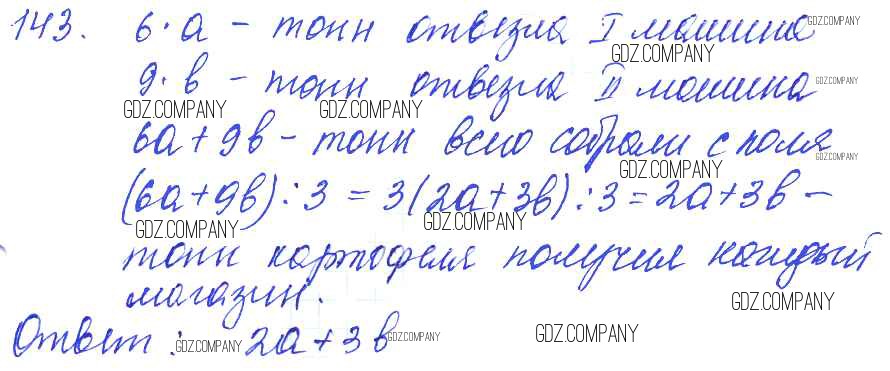 143. 6·a – тонн отвезла I машина GDZ.COMPANY
GDZ.COMPANY
9·в – тонн отвезла II машина GDZ.COMPANY
GDZ.COMPANY GDZ.COMPANY
6a+9в – тонн всего собрали с поля GDZ.COMPANY
GDZ.COMPANY
(6a+9в):3 = 3(2a+3в):3 = 2a+3в –
GDZ.COMPANY GDZ.COMPANY
тонн картофеля получил каждый
магазин.
GDZ.COMPANY
Ответ: GDZ.COMPANY 2a+3в GDZ.COMPANY GDZ.COMPANY